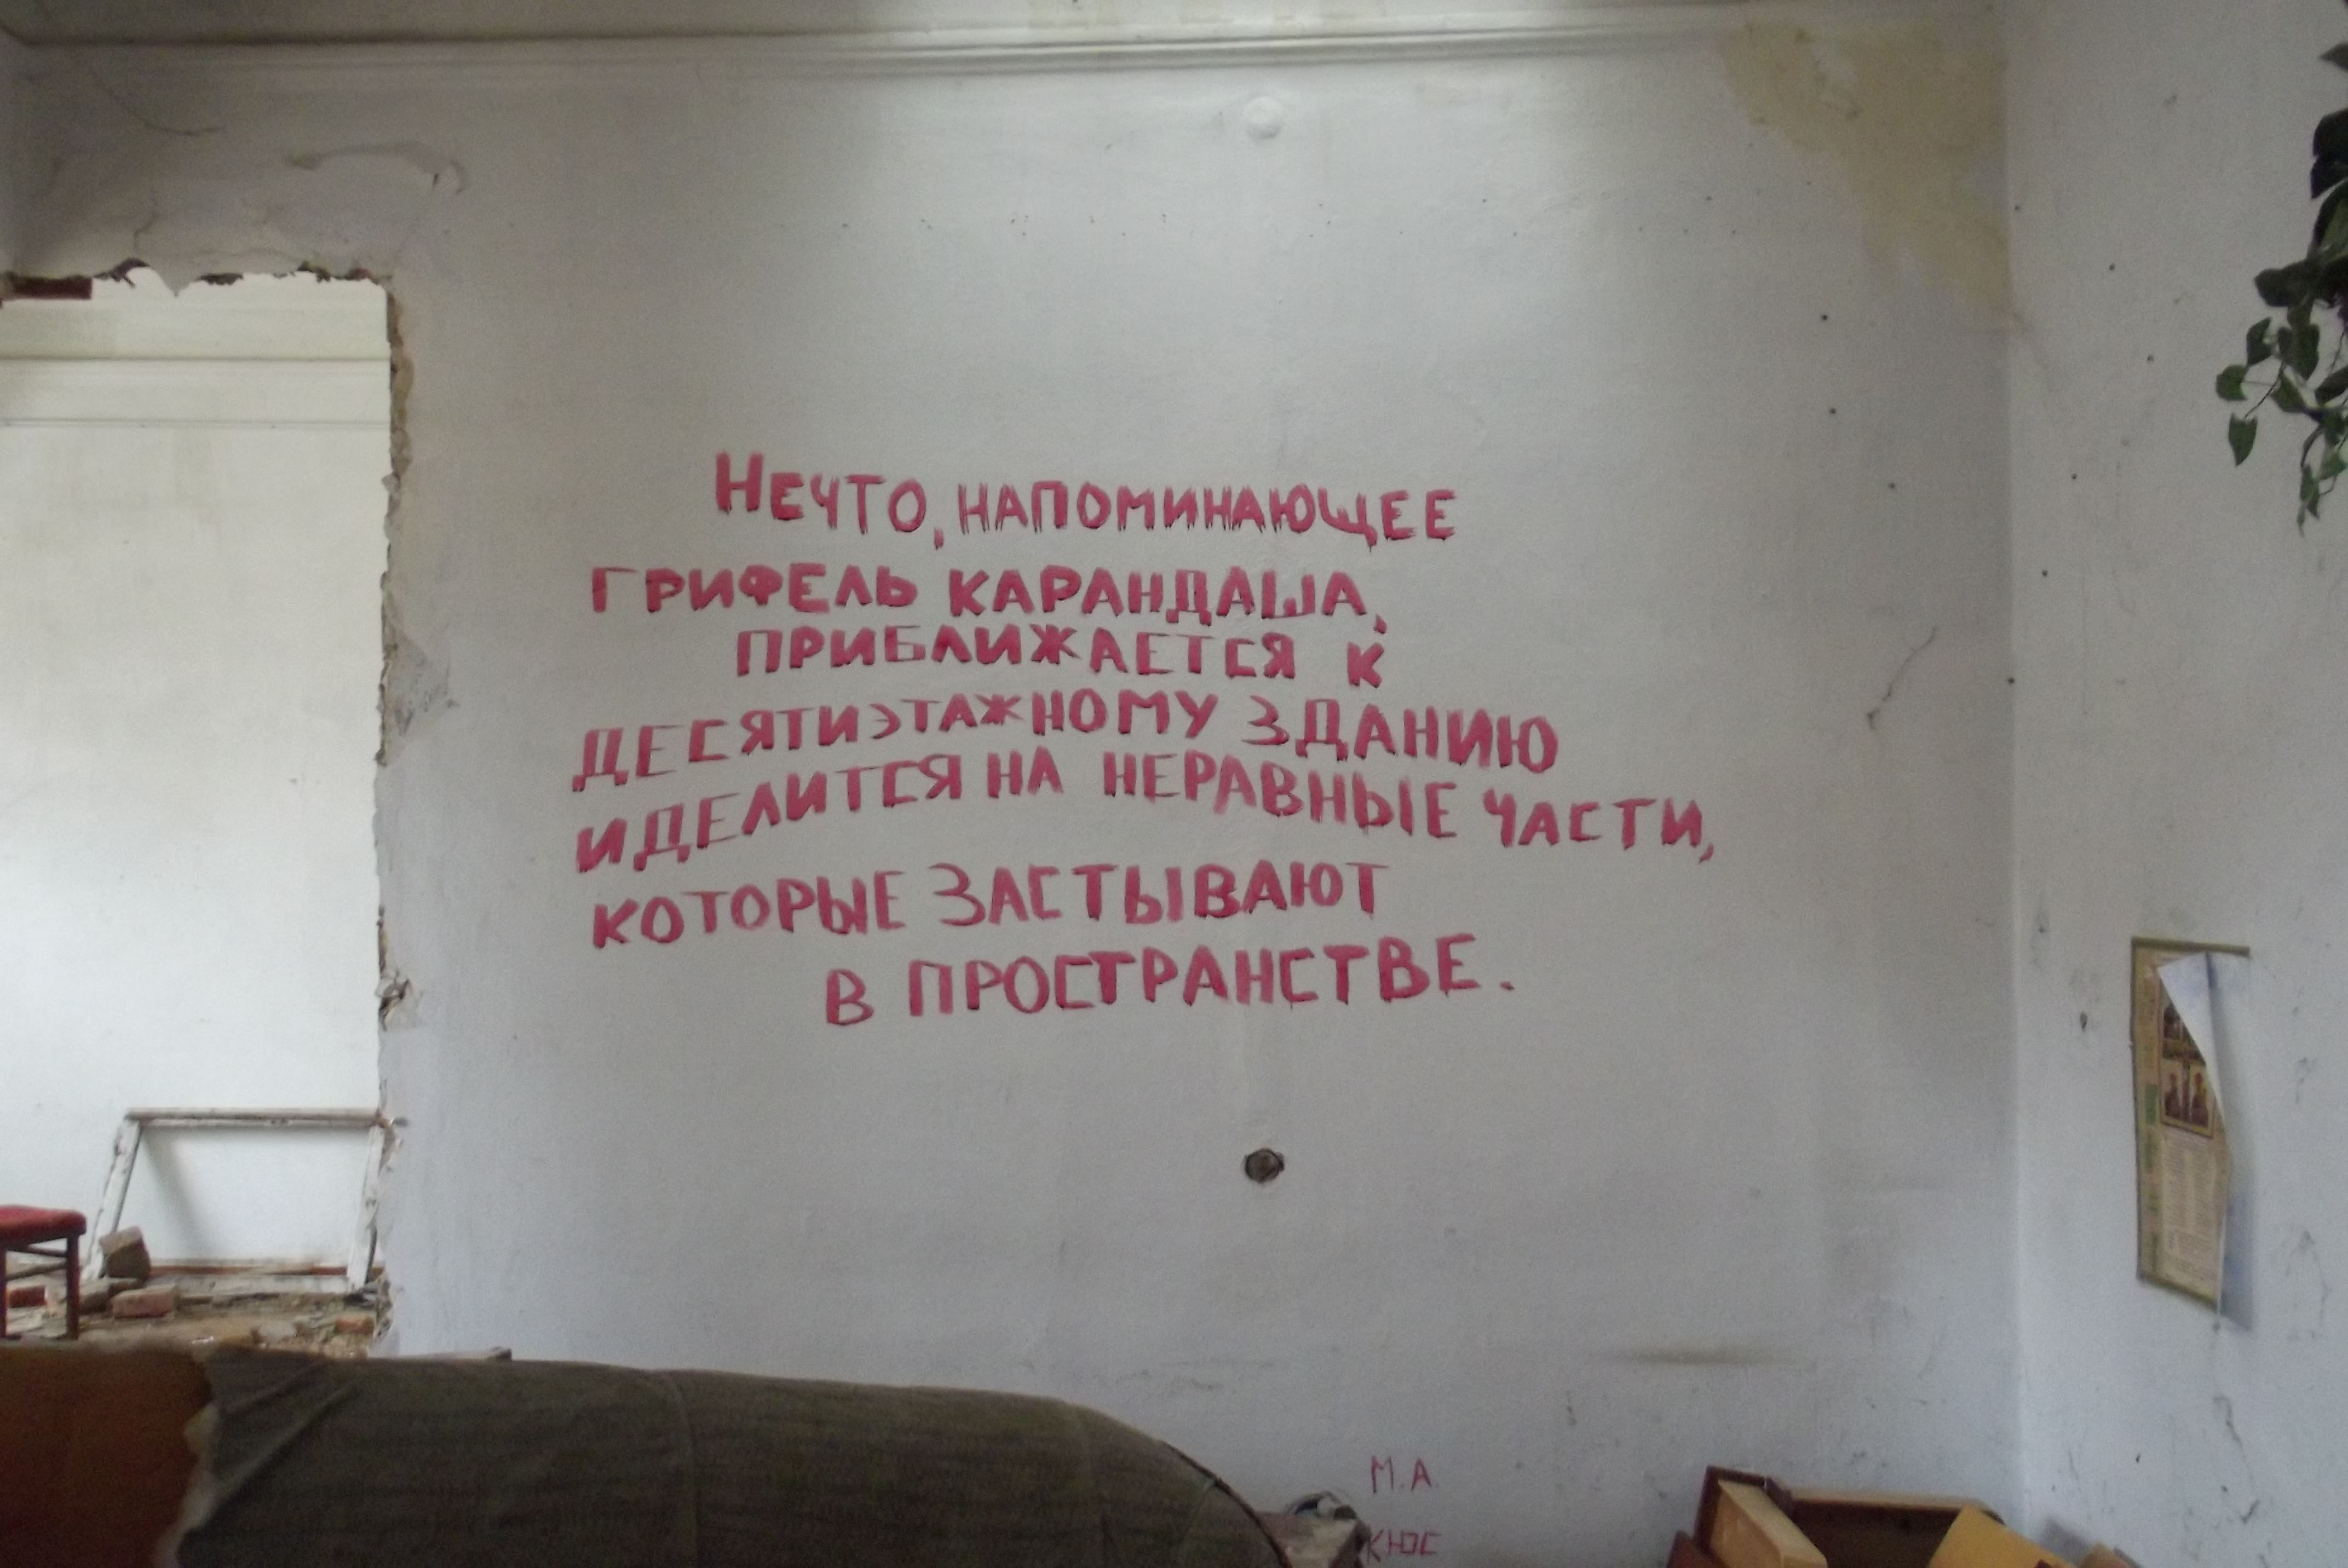 Нечто, напоминающее
грифель карандаша,
приближается к
десятиэтажному зданию
и делится на неравные части,
которые застывают
в пространстве.
М.А.